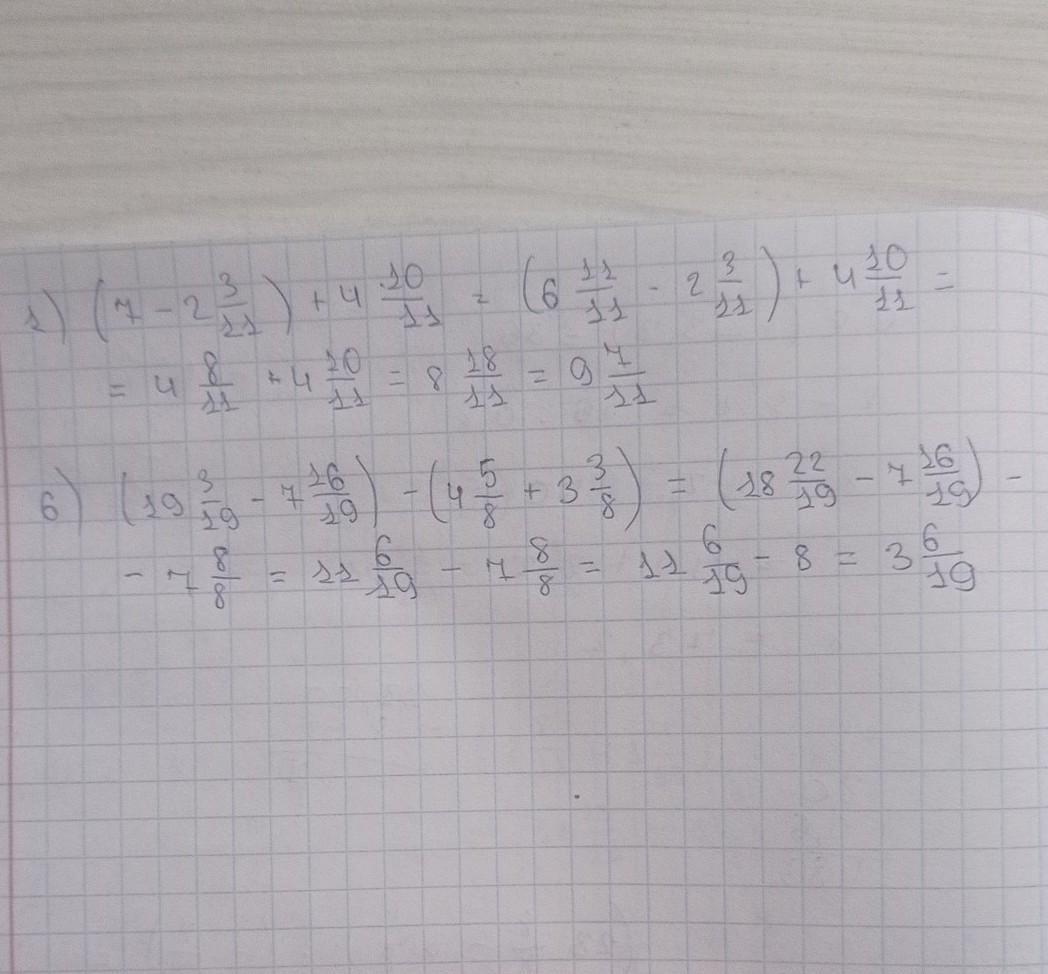 1) (7 - 2 3/11) + 4 10/11 = (6 11/11 - 2 3/11) + 4 10/11 =
= 4 8/11 + 4 10/11 = 8 18/11 = 9 7/11
6) (19 3/19 - 7 16/19) - (4 5/8 + 3 3/8) = (18 22/19 - 7 16/19) -
- 7 8/8 = 11 6/19 - 7 8/8 = 11 6/19 - 8 = 3 6/19